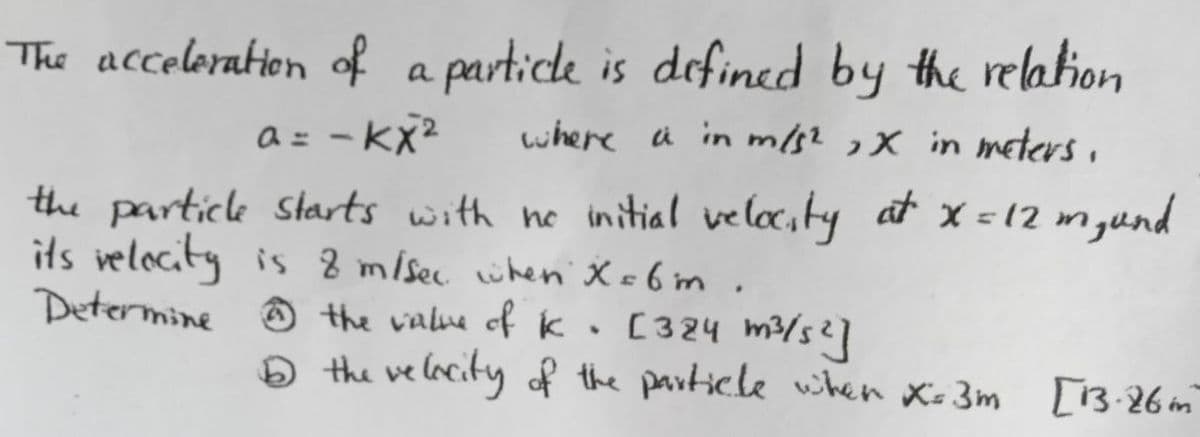 The acceleration of a particle is defined by the relation
a = -kx̄² where a in m/s² , x in meters ,
the particle starts with no initial velocity at x = 12 m, and
its velocity is 8 m/sec when x = 6 m .
Determine ⓐ the value of k . [324 m³/s²]
ⓑ the velocity of the particle when x = 3m [13.26 m